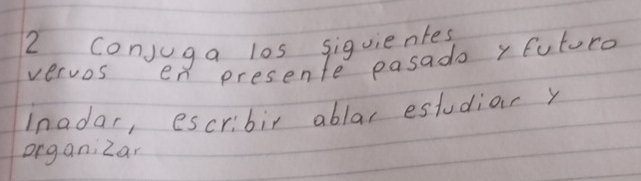 2 conjuga los siguientes
vervos en presente pasado y futuro
inadar, escribir ablar estudiar y
organizar